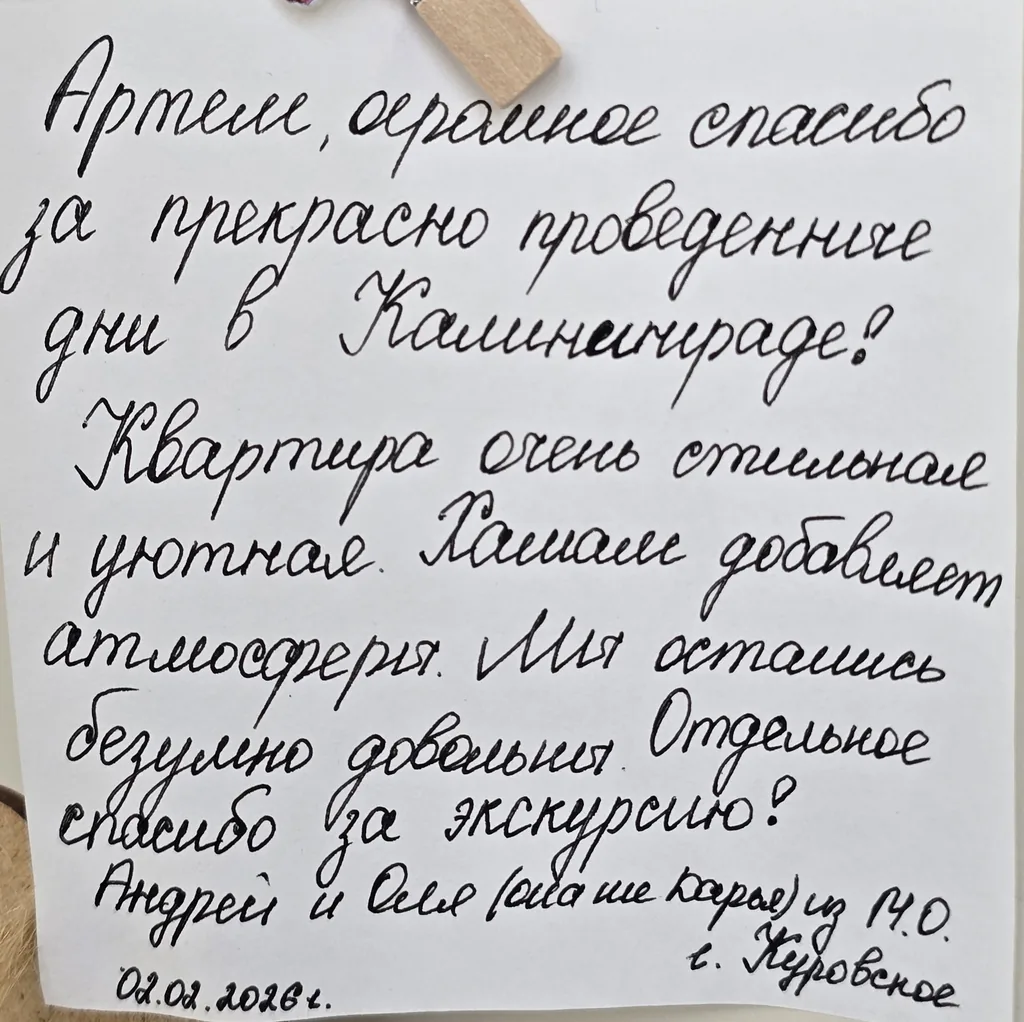 Артем, огромное спасибо
за прекрасно проведенные
дни в Калининграде!
Квартира очень стильная
и уютная. Хамам добавляет
атмосферы. Мы остались
безумно довольны. Отдельное
спасибо за экскурсию!
Андрей и Оля (она же Дарья) из М.О.
г. Куровское
02.02.2026г.